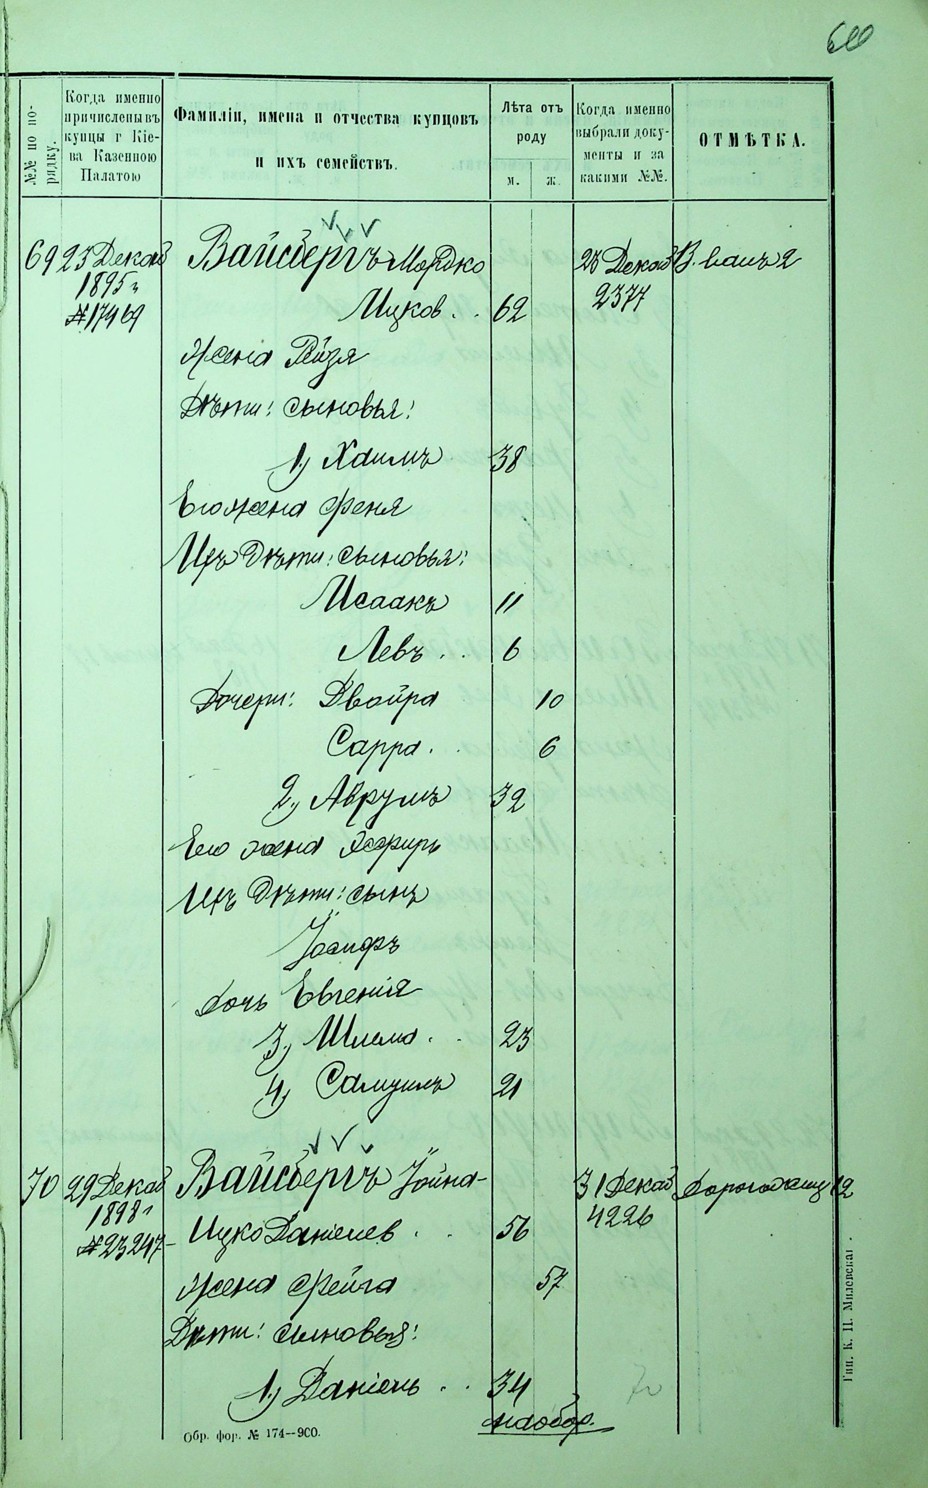 №№ по по-
рядку.
Когда именно
причислены въ
купцы г Кіе-
ва Казенною
Палатою
Фамиліи, имена и отчества купцовъ
и ихъ семействъ.
Лѣта отъ
роду
м. ж.
Когда именно
выбрали доку-
менты и за
какими №№.
ОТМѢТКА.
69 23 Декаб Вайсбергъ Мордко 28 Декаб
1895 г
№ 17469
Ицков . . 62
2377
Жена Рейзя
Дѣти: сыновья:
1) Хаимъ 38
Его жена Феня
Ихъ дѣти: сыновья:
Исаакъ 11
Левъ . . 6
Дочери: Двойра 10
Сарра . . 6
2) Аврумъ 32
Его жена Эсфирь
Ихъ дѣти: сынъ
Іосифъ
Дочь Евгенія
3) Шлема . . 23
4) Самуилъ 21
70 29 Декаб Вайсбергъ Іойна- 31 Декаб
1898 г
№ 23247
Ицко Даніелев . . 56
4226
Жена Фейга 57
Дѣти: сыновья:
1) Даніель . . 34
наобор.
70
Обр. фор. № 174--900.
Тип. К. Н. Милевскаг .